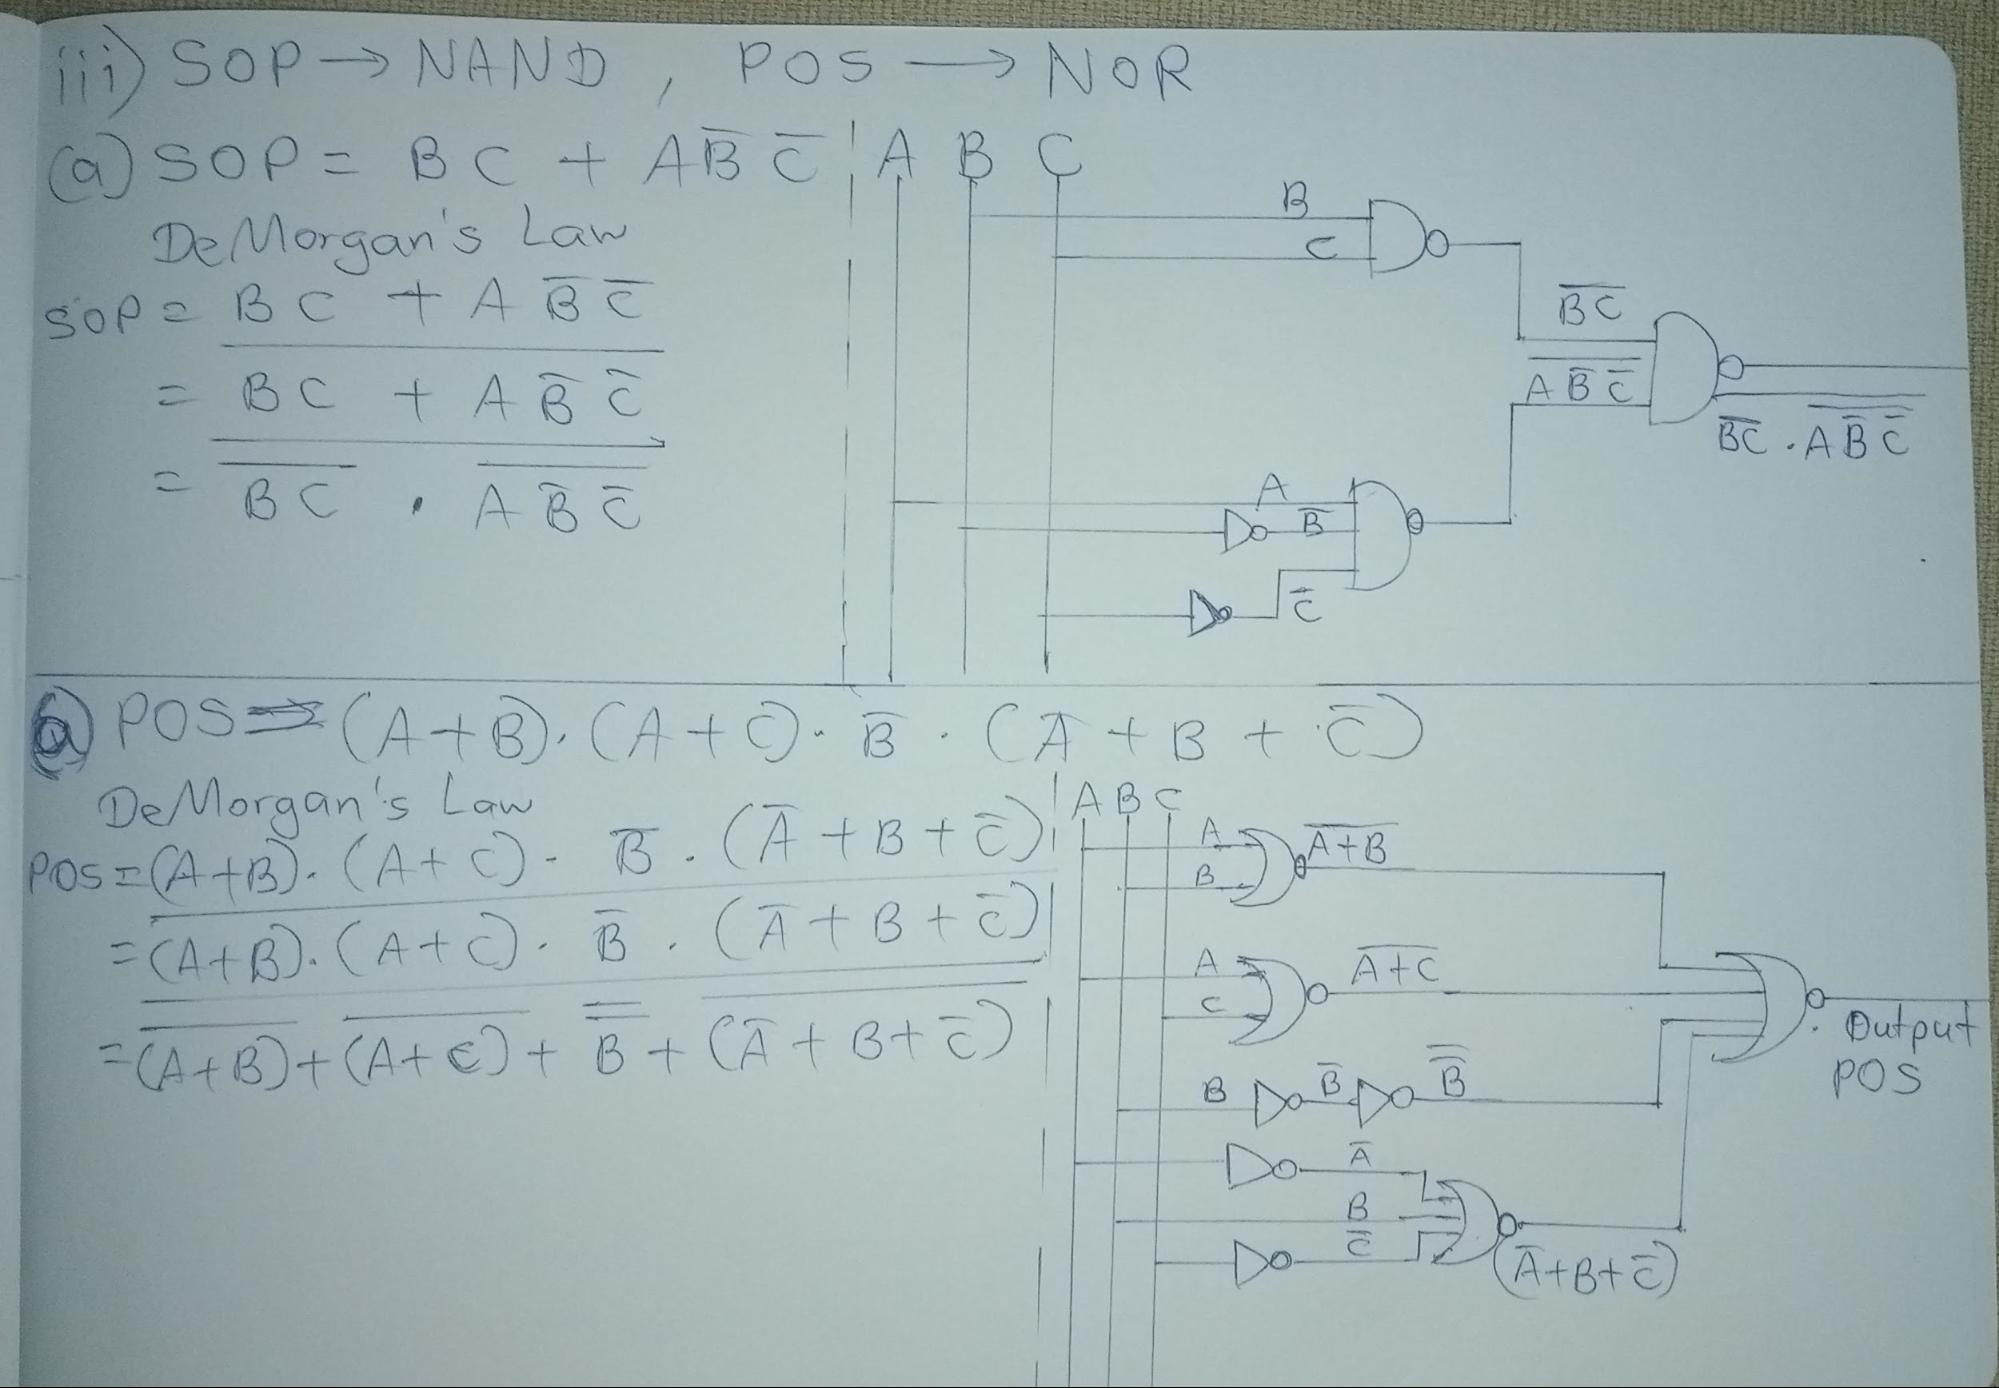 iii) SOP → NAND , POS → NOR
(a) SOP = BC + AB̅C̅
DeMorgan's Law
SOP = BC + AB̅C̅
= \overline{BC + AB̅C̅}
= \overline{\overline{BC} · \overline{AB̅C̅}}
A B C
B
C
\overline{BC}
\overline{AB̅C̅}
\overline{\overline{BC} · \overline{AB̅C̅}}
A
B̅
C̅
POS = (A+B)·(A+C)·B̅·(A̅+B+C̅)
DeMorgan's Law
POS = (A+B)·(A+C)·B̅·(A̅+B+C̅)
= \overline{(A+B)·(A+C)·B̅·(A̅+B+C̅)}
= \overline{\overline{(A+B)}+\overline{(A+C)}+\overline{\overline{B}}+\overline{(A̅+B+C̅)}}
A B C
A
B
\overline{A+B}
A
C
\overline{A+C}
B B̅ \overline{\overline{B}}
A̅
B
C̅
(A̅+B+C̅)
Output
POS